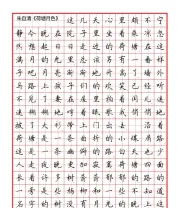 朱自清《荷塘月色》
这几天心里颇不宁
静今晚在院子里坐着乘凉忽
然想起日日走过的荷塘在这
满月的光里总该另有一番样
子吧月亮渐渐地升高了墙外
马路上孩子们的欢笑已经听
不见了妻在屋里拍着闰儿迷
迷糊糊地哼着眠歌我悄悄地
披了大衫带上门出去沿着
荷塘是一条曲折的小煤屑路
这是一条幽僻的路白天也少
人走夜晚更加寂寞荷塘四面
长着许多树蓊蓊郁郁的路的
一旁是些杨柳和一些不知道